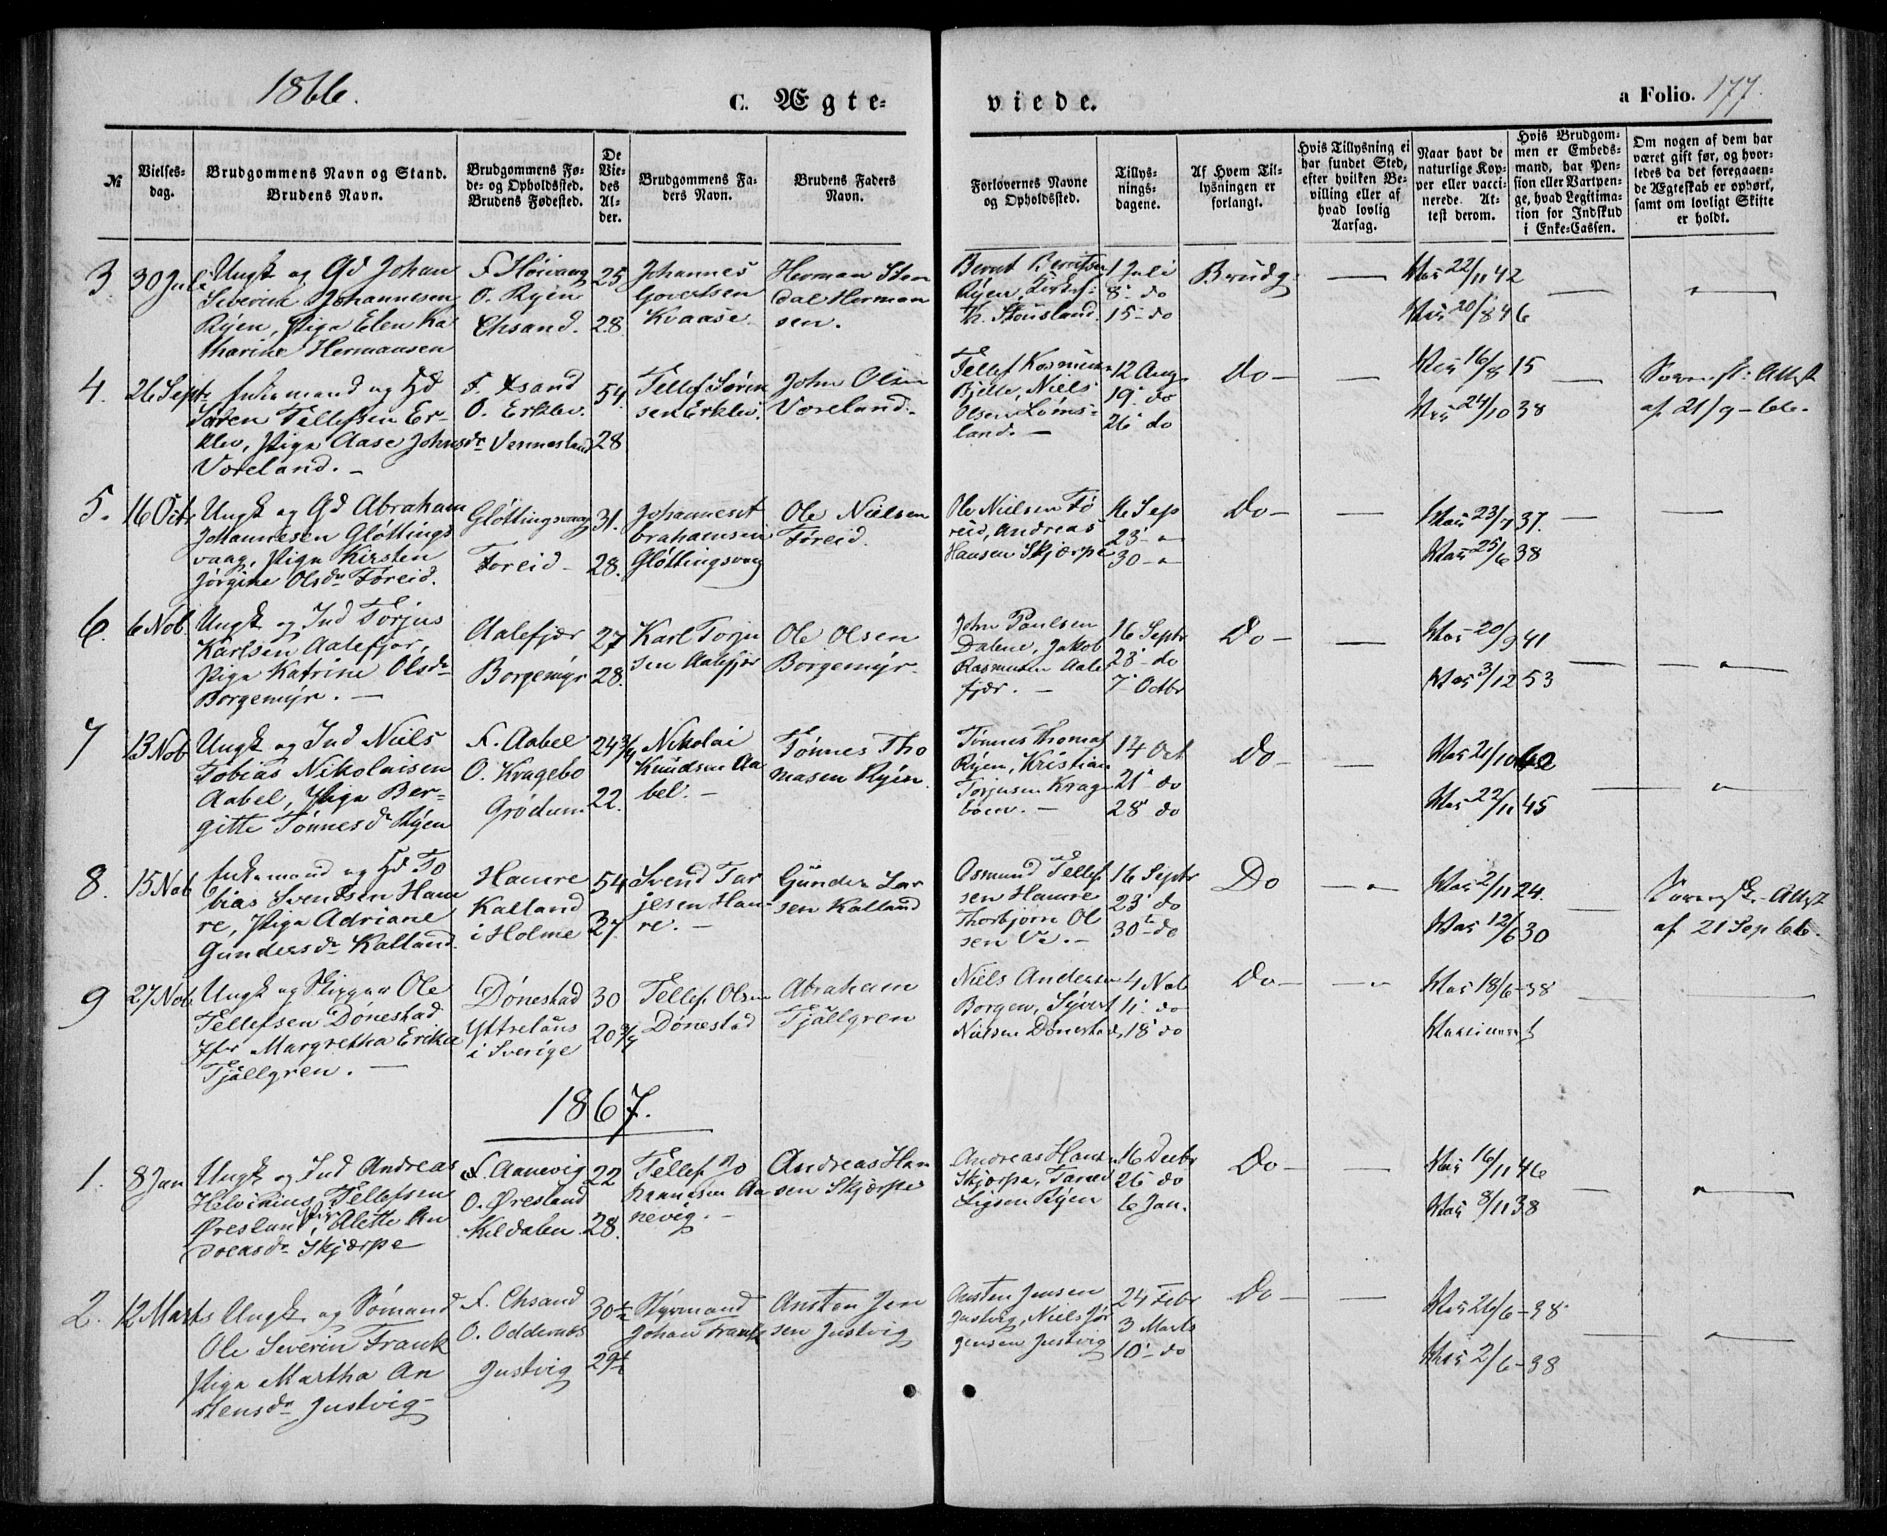 1866.
C. Ægte-
viede.
a Folio. 177.
№
Vielses-
dag.
Brudgommens Navn og Stand.
Brudens Navn.
Brudgommens Fø-
de- og Opholdssted.
Brudens Fødested.
De
Vie-
des
Al-
der.
Brudgommens Fa-
ders Navn.
Brudens Faders
Navn.
Forlovernes Navne
og Opholdssted.
Tillys-
nings-
dagene.
Af Hvem Til-
lysningen er
forlangt.
Hvis Tillysning ei
har fundet Sted,
efter hvilken Be-
villing eller af
hvad lovlig
Aarsag.
Naar havt de
naturlige Kop-
per eller vacci-
nerede. At-
test derom.
Hvis Brudgom-
men er Embeds-
mand, har Pen-
sion eller Vartpen-
ge, hvad Legitima-
tion for Indskud
i Enke-Cassen.
Om nogen af dem har
været gift før, og hvor-
ledes da det foregaaen-
de Ægteskab er ophørt,
samt om lovligt Skifte
er holdt.
3 30 Juli
Ungk og Gd Johan
Severin Johannesen
Ryen, Pige Elen Ka
tharine Hermansen
F. Høivaag
O. Ryen
Chsand.
25
28
Johannes
Govertsen
Kvaase
Herman Sten
dal Herman
sen.
Bernt Berntsen
Ryen,
K. Stousland.
1 Juli
8 do
15 do
Brudg
—
Vac 22/11 42
Vac 20/8 46
—
"
4. 26 Septr
Enkemand og Gd
Søren Tellefsen Er-
klev, Pige Aase Johnsdr
Voreland. —
F. Xsand
O. Erklev.
Vennesland
54.
28
Tellef Søren
sen Erklev.
John Olsen
Voreland.
Tellef Rasmussen
Bjelle, Niels
Olsen Løms-
land. —
12 Aug
19 do
26 do
Do —
—
Vac 16/8 15
Vac 24/10 38
—
Sorenskr: Attest
af 21/9 - 66.
5. 16 Octr
Ungk og Gd Abraham
Johannesen Gløttings
vaag, Pige Kirsten
Jørgine Olsdr Føreid.
Gløttingsvaag
Foreid —
31.
28.
Johannes A
brahamsen
Gløttingsvaag
Ole Nielsen
Føreid.
Ole Nielsen Fø
reid, Andreas
Hansen Skjærpe
16 Sep
23 "
30 "
Do —
—
Vac 23/7 37.
Vac 25/6 38
—
—
6. 6 Nob
Ungk og Ind Torjus
Karlsen Aalefjær,
Pige Katrine Olsdr
Borgemyr. —
Aalefjær
Borgemyr
27
28.
Karl Torju
sen Aalefjær
Ole Olsen
Borgemyr.
John Paulsen
Dalene, Jakob
Rasmusen Aale
fjær. —
16 Septr
23 do
7 Octbr
Do —
—
Vac 20/9 41
Vac 3/12 53
—
"
7 13 Nob
Ungk og Ind Niels
Tobias Nikolaisen
Aabel, Pige Ber-
gitte Tønnesdr Ryen
F. Aabel
O. Kragebo
Grødum
24 3/4
22.
Nikolai
Knudsen Aa
bel. —
Tønnes Tho
masen Ryen
Tønnes Thomas
Ryen, Kristian
Torjusen Krage
boen. —
14 Oct
21 do
28 do
Do —
—
Vac 21/10 42
Vac 22/11 45
—
"
8. 15 Nob
Enkemand og Gd To
bias Svendsen Ham
re, Pige Adriane
Gundersdr Kalland
Hamre
Kalland
i Holme
54
37.
Svend Tar
jesen Ham-
re. —
Gunder Lar
sen Kalland
Osmund Tellef
sen Hamre
Thorbjørn Ol
sen Ve. —
16 Septr
23 do
30 do
Do
— "
Vac 2/11 24.
Vac 12/6 30
—
Sorenskr. Attest
af 21 Sep 66.
9 27 Nob
Ungk og Skipper Ole
Tellefsen Dønestad
Jfr Margretha Erika
Tjällgren. —
Dønestad
Yttreläns
i Sverige
30
20 3/4
Tellef Olsen
Dønestad
Abraham
Tjällgren
Niels Andersen
Borgen, Syvert
Nielsen Dønestad
4 Nob
11 do
18 do
Do —
— "
Vac 18/6 - 38
Vaccineret
—
—
1867.
1. 8 Jan
Ungk og Ind Andreas
Helvikius Tellefsen
Øresland, Pige Alette An
dreasdr Skjærpe
F. Aanevig
O. Øresland
Kildalen
22
28.
Tellef Jo
hannesen Aa
nevig. —
Andreas Han
sen Skjærpe
Andreas Hansen
Skjærpe, Tarald
Ryen
16 Decbr
26 do
6 Jan.
Do —
—
Vac 16/11 46
Vac 8/11 38
—
"
2. 12 Marts
Ungk og Sømand
Ole Severin Frank
Pige Martha An
stensdr Justvig
F. Chsand
O. Oddernes
Justvig
30 1/2
29 1/2
Styrmand
Johan Frank
Ansten Jen
sen Justvig
Ansten Jensen
Justvig, Niels Jør
gensen Justvig
24 Febr
3 Marts
10 do
Do —
—
Vac 26/6 - 38
Vac 2/6 - 38
—
"